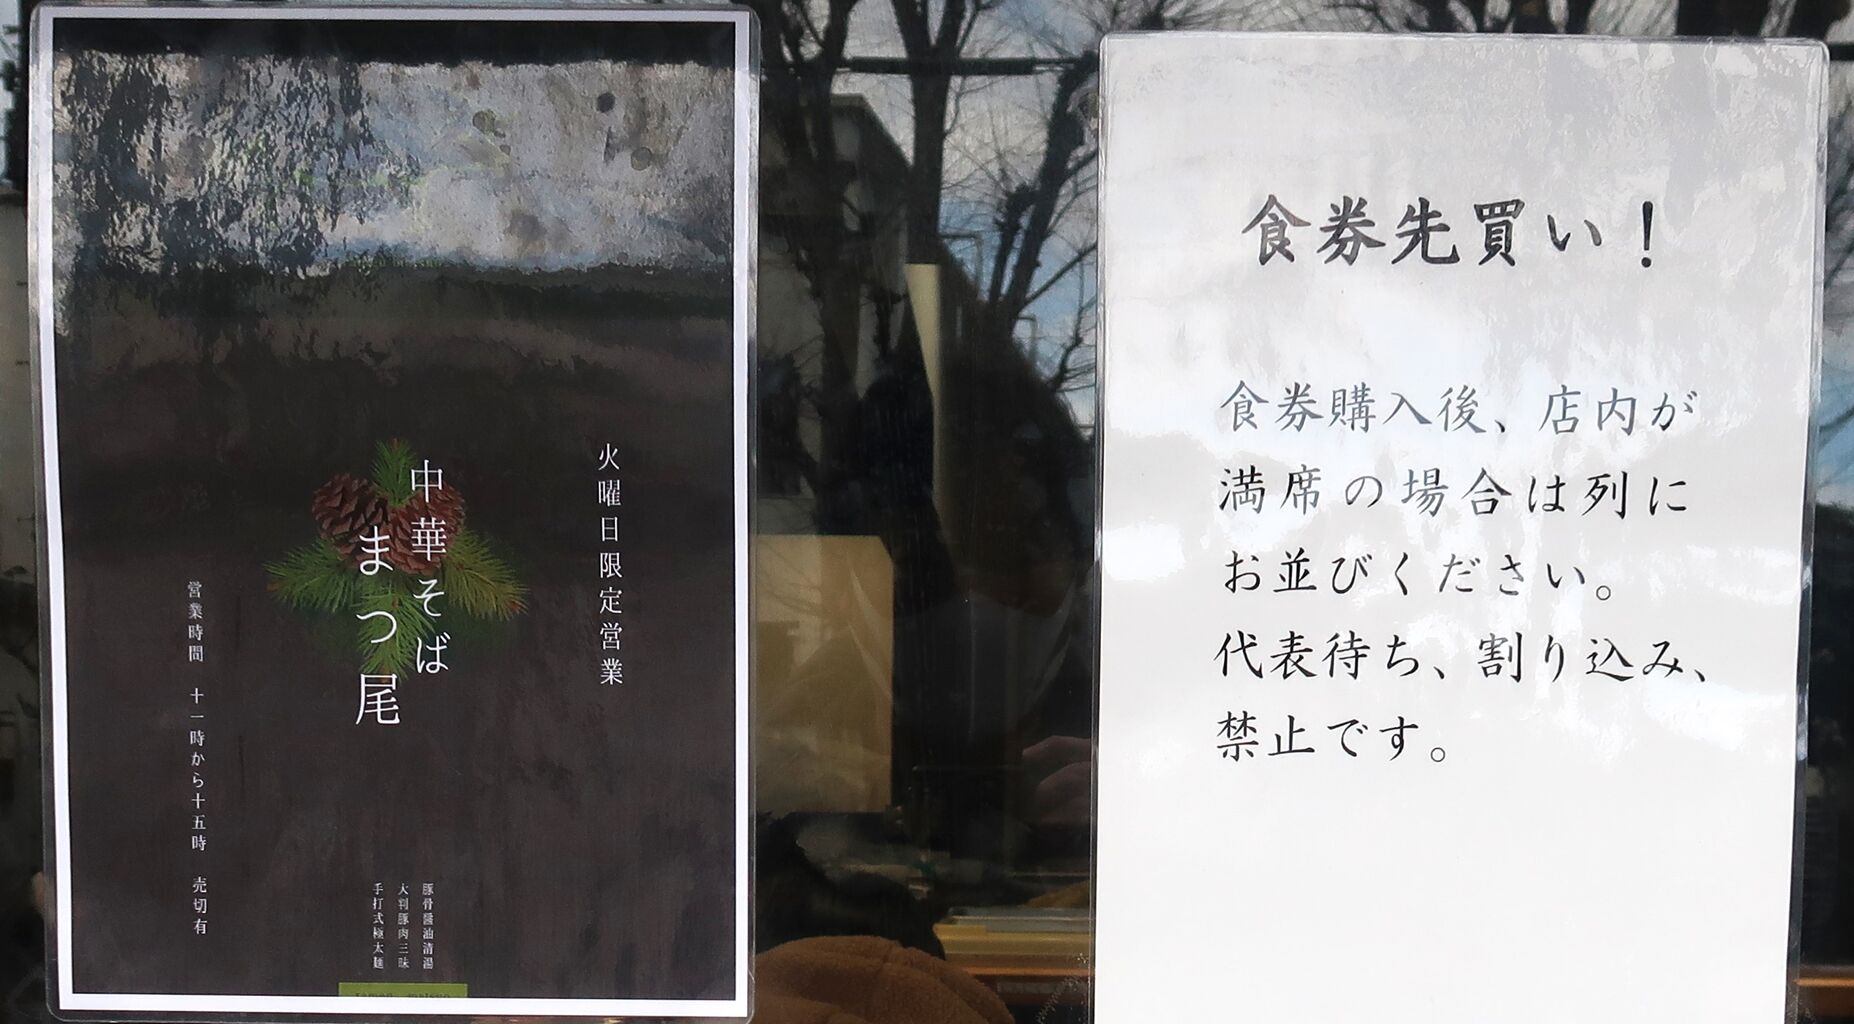 火曜日限定営業
中華そば
まつ尾
営業時間 十一時から十五時 売切有
豚骨醤油清湯
大判豚肉三昧
手打式極太麺
食券先買い！
食券購入後、店内が
満席の場合は列に
お並びください。
代表待ち、割り込み、
禁止です。